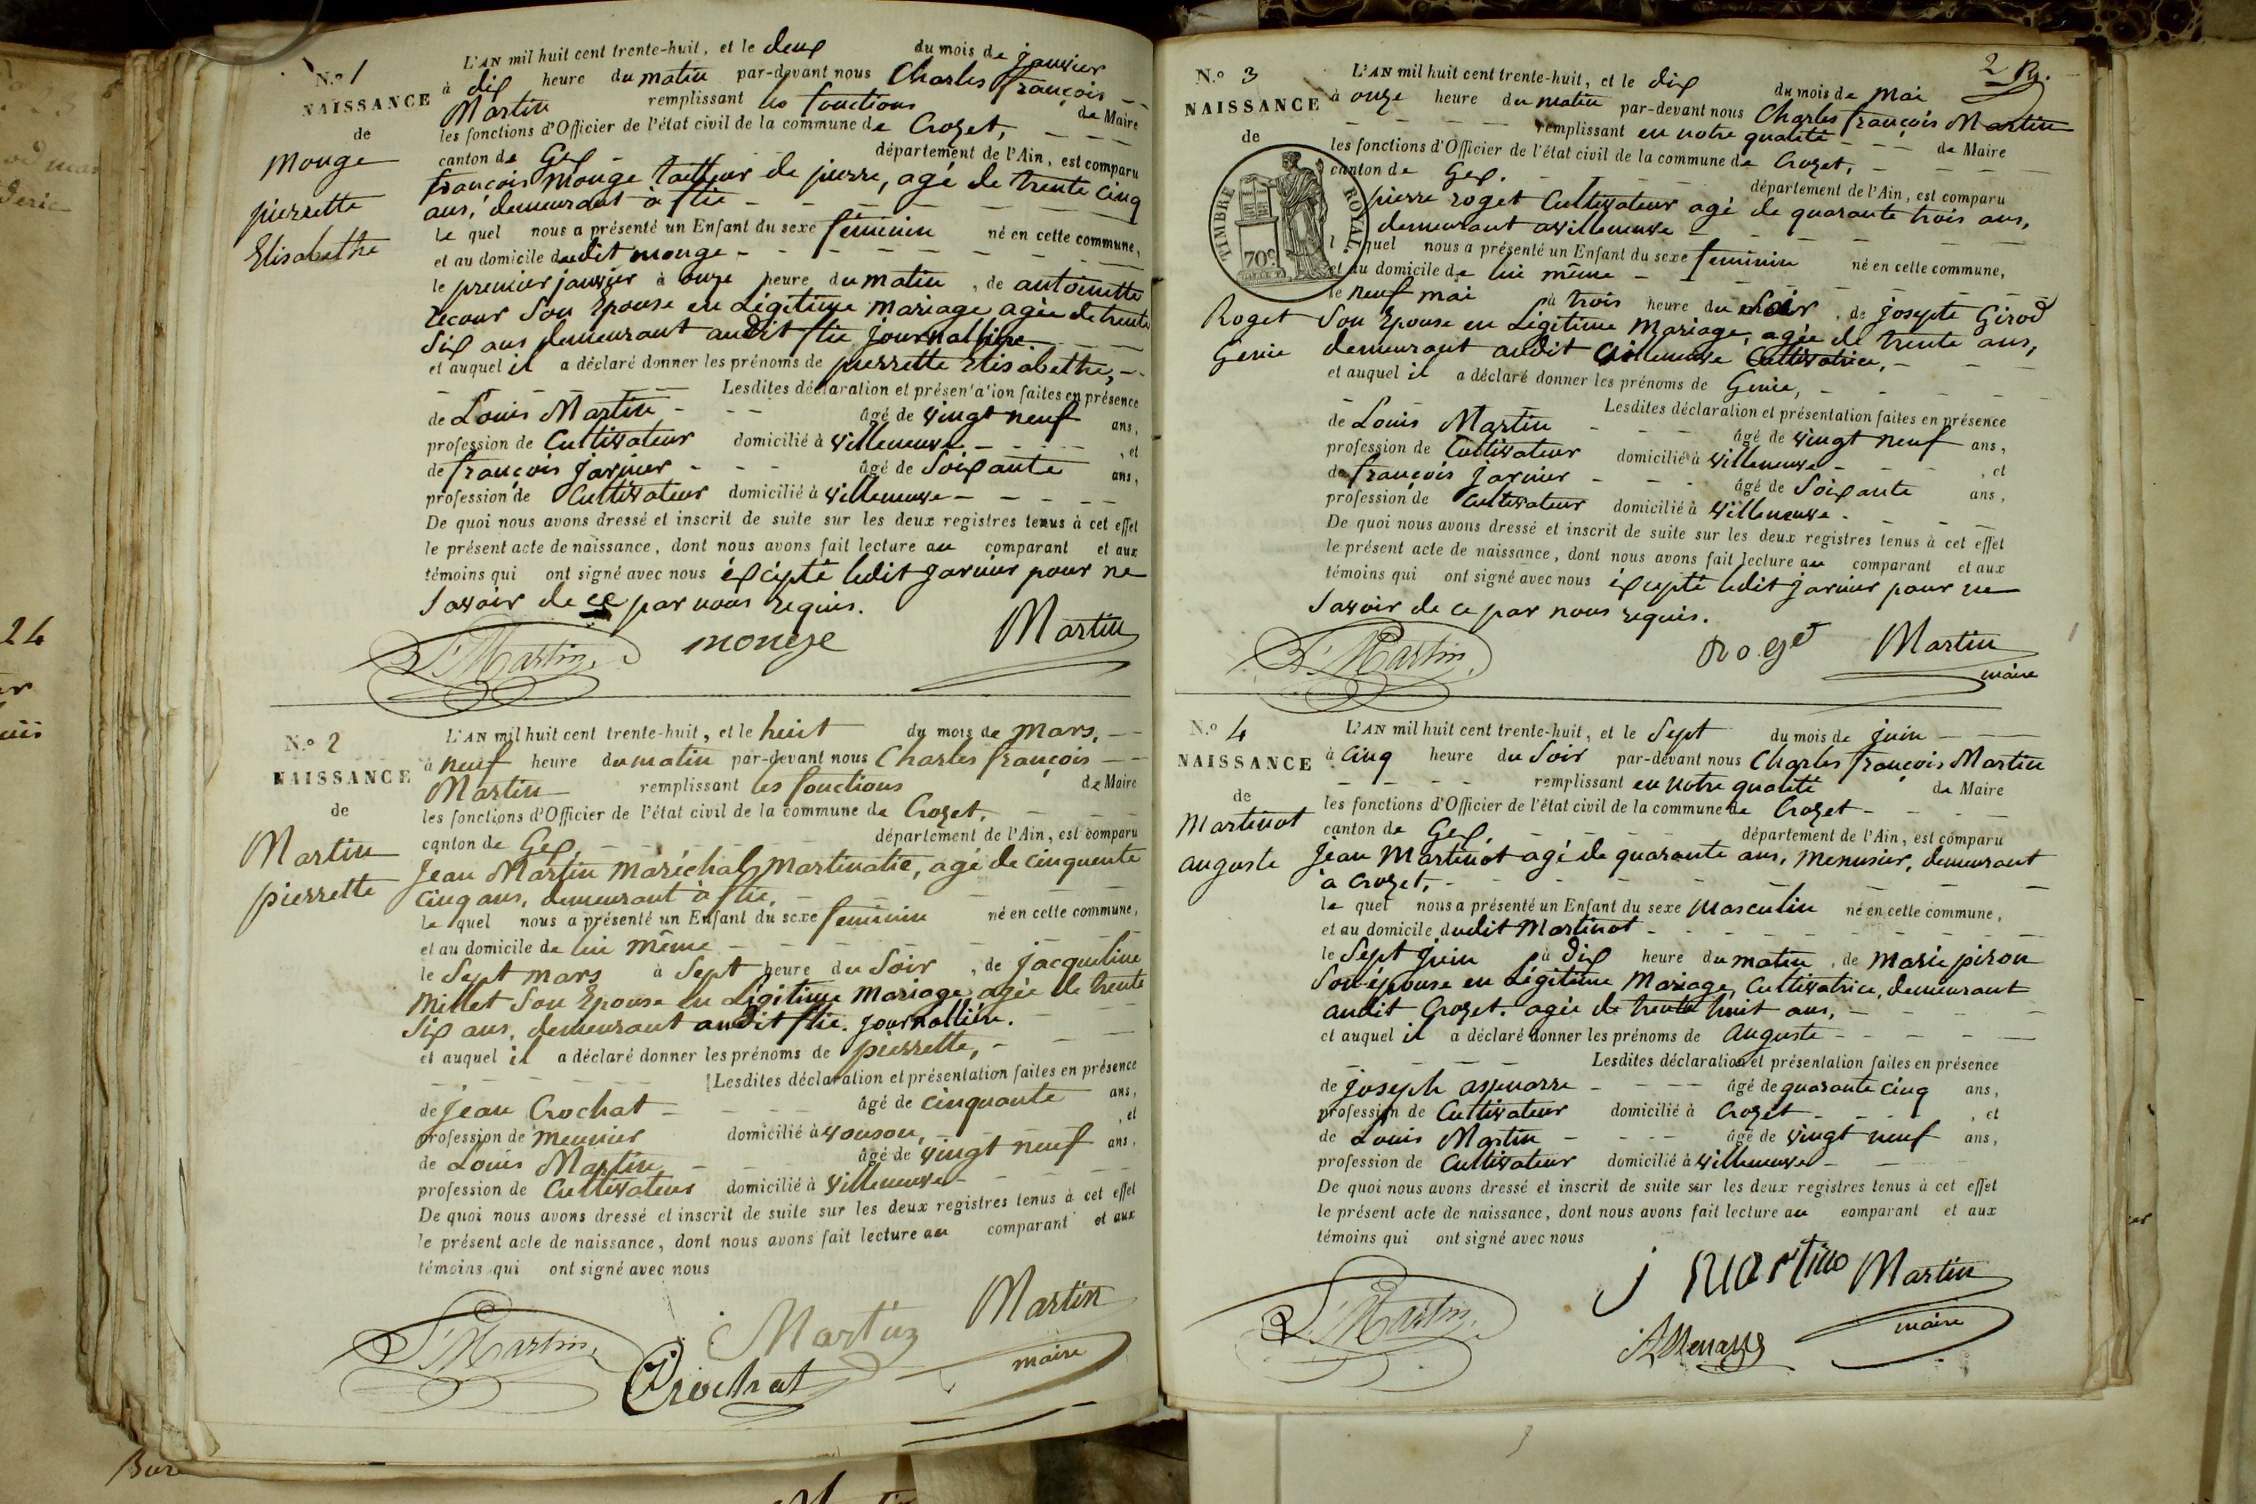 N.º 1
NAISSANCE
de
Monge
pierrette
Elisabethe
L'AN mil huit cent trente-huit, et le deux du mois de janvier
à dix heure du matin par-devant nous Charles françois
Martin remplissant les fonctions de Maire
les fonctions d'Officier de l'état civil de la commune de Crozet,
canton de Gex département de l'Ain, est comparu
françois Monge tailleur de pierre, agé de trente cinq
ans, demeurant à flie
le quel nous a présenté un Enfant du sexe féminin né en cette commune,
et au domicile dudit monge
le premier janvier à onze heure du matin, de antoinette
Lecour Son Epouse en Légitime Mariage agée de trente
Six ans demeurant audit flie journallière.
et auquel il a déclaré donner les prénoms de pierrette Elisabethe,
Lesdites déclaration et présentation faites en présence
de Louis Martin âgé de vingt neuf ans,
profession de Cultivateur domicilié à villeneuve, et
de françois jarnier âgé de Soixante ans,
profession de Cultivateur domicilié à villeneuve
De quoi nous avons dressé et inscrit de suite sur les deux registres tenus à cet effet
le présent acte de naissance, dont nous avons fait lecture au comparant et aux
témoins qui ont signé avec nous éxcépté ledit jarnier pour ne
Savoir de ce par nous requis.
L. Martin monge Martin
N.º 2
NAISSANCE
de
Martin
pierrette
L'AN mil huit cent trente-huit, et le huit du mois de Mars,
à neuf heure du matin par-devant nous Charles françois
Martin remplissant les fonctions de Maire
les fonctions d'Officier de l'état civil de la commune de Crozet,
canton de Gex, département de l'Ain, est comparu
Jean Martin Maréchal Martinatie, agé de cinquente
cinq ans, demeurant à flie,
le quel nous a présenté un Enfant du sexe féminin né en cette commune,
et au domicile de lui même
le Sept mars à Sept heure du Soir, de jacqueline
Millet Son Epouse en Légitime Mariage agée de trente
Six ans, demeurant audit flie. journallière.
et auquel il a déclaré donner les prénoms de pierrette,
Lesdites déclaration et présentation faites en présence
de Jean Crochat âgé de cinquante ans,
profession de meunier domicilié à vouson, et
de Louis Martin âgé de vingt neuf ans,
profession de Cultivateur domicilié à villeneuve
De quoi nous avons dressé et inscrit de suite sur les deux registres tenus à cet effet
le présent acte de naissance, dont nous avons fait lecture au comparant et aux
témoins qui ont signé avec nous
L. Martin Martin Martin
Crochat maire
2 
N.º 3
NAISSANCE
de
TIMBRE ROYAL
70c
Roget
Génie
L'AN mil huit cent trente-huit, et le dix du mois de Mai
à onze heure du matin par-devant nous Charles françois Martin
remplissant en notre qualité de Maire
les fonctions d'Officier de l'état civil de la commune de Crozet,
canton de Gex. département de l'Ain, est comparu
pierre roget Cultivateur agé de quarante trois ans,
demeurant a villeneuve
l quel nous a présenté un Enfant du sexe féminin né en cette commune,
et au domicile de lui même
le neuf mai à trois heure du Soir, de josepte Girod
Son Epouse en Légitime Mariage, agée de trente ans,
demeurant audit villeneuve Cultivatrice,
et auquel il a déclaré donner les prénoms de Génie,
Lesdites déclaration et présentation faites en présence
de Louis Martin âgé de vingt neuf ans,
profession de Cultivateur domicilié à villeneuve, et
de françois jarnier âgé de Soixante ans,
profession de Cultivateur domicilié à villeneuve.
De quoi nous avons dressé et inscrit de suite sur les deux registres tenus à cet effet
le présent acte de naissance, dont nous avons fait lecture au comparant et aux
témoins qui ont signé avec nous éxcepté ledit jarnier pour ne
Savoir de ce par nous requis.
L. Martin Roget Martin
maire
N.º 4
NAISSANCE
de
Martinot
auguste
L'AN mil huit cent trente-huit, et le Sept du mois de juin
à cinq heure du Soir par-devant nous Charles françois Martin
remplissant en notre qualité de Maire
les fonctions d'Officier de l'état civil de la commune de Crozet
canton de Gex. département de l'Ain, est comparu
Jean Martinot agé de quarante ans, Menusier, demeurant
à Crozet,
le quel nous a présenté un Enfant du sexe masculin né en cette commune,
et au domicile dudit Martinot
le Sept juin à dix heure du matin, de Marie piron
Son épouse en Légitime Mariage, Cultivatrice, demeurant
audit Crozet. agée de trente huit ans,
et auquel il a déclaré donner les prénoms de Auguste
Lesdites déclaration et présentation faites en présence
de joseph âgé de quarante cinq ans,
profession de Cultivateur domicilié à Crozet, et
de Louis Martin âgé de vingt neuf ans,
profession de Cultivateur domicilié à villeneuve
De quoi nous avons dressé et inscrit de suite sur les deux registres tenus à cet effet
le présent acte de naissance, dont nous avons fait lecture au comparant et aux
témoins qui ont signé avec nous
L. Martin Martin
maire